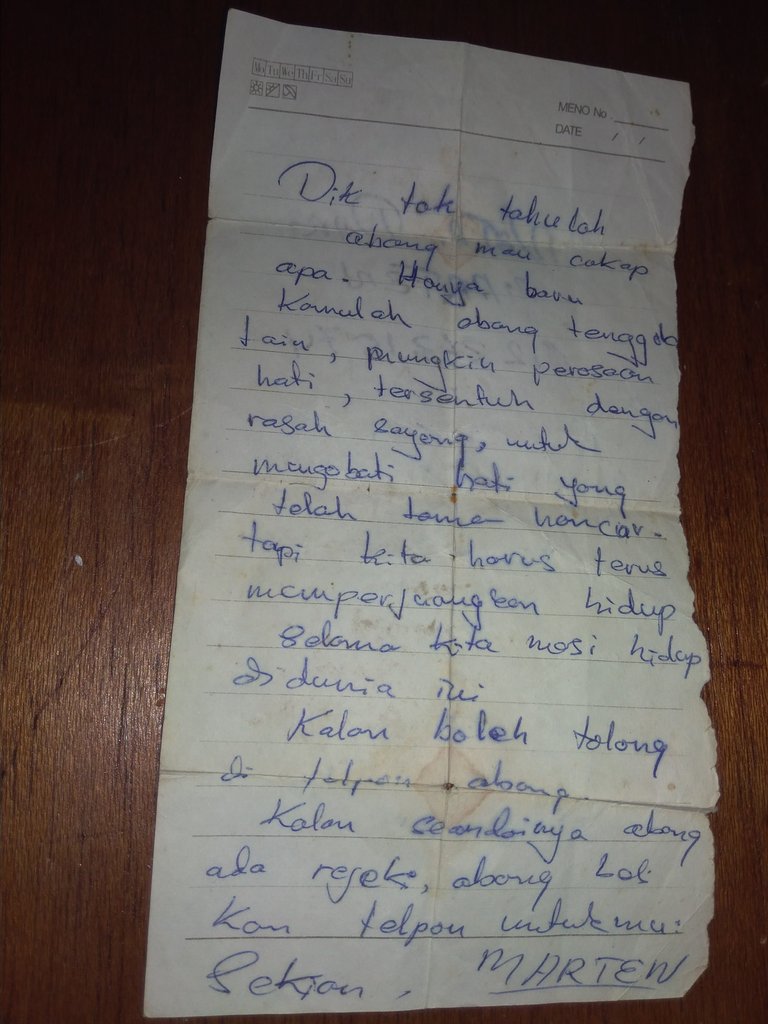 Mo Tu We Th Fr Sa Su
MENO No.
DATE / /
Dik tak tahulah
abang mau cakap
apa. Hanya baru
Kamulah abang
lain, mungkin perasaan
hati, tersentuh dengan
rasah sayang, untuk
mengobati hati yang
telah lama hancur.
tapi kita harus terus
memperjuangkan hidup
Selama kita masi hidup
di dunia ini
Kalau boleh tolong
di telpon abang.
Kalau seandainya abang
ada rejeki, abang beli
Kan telpon untukmu.
Sekian, MARTEN